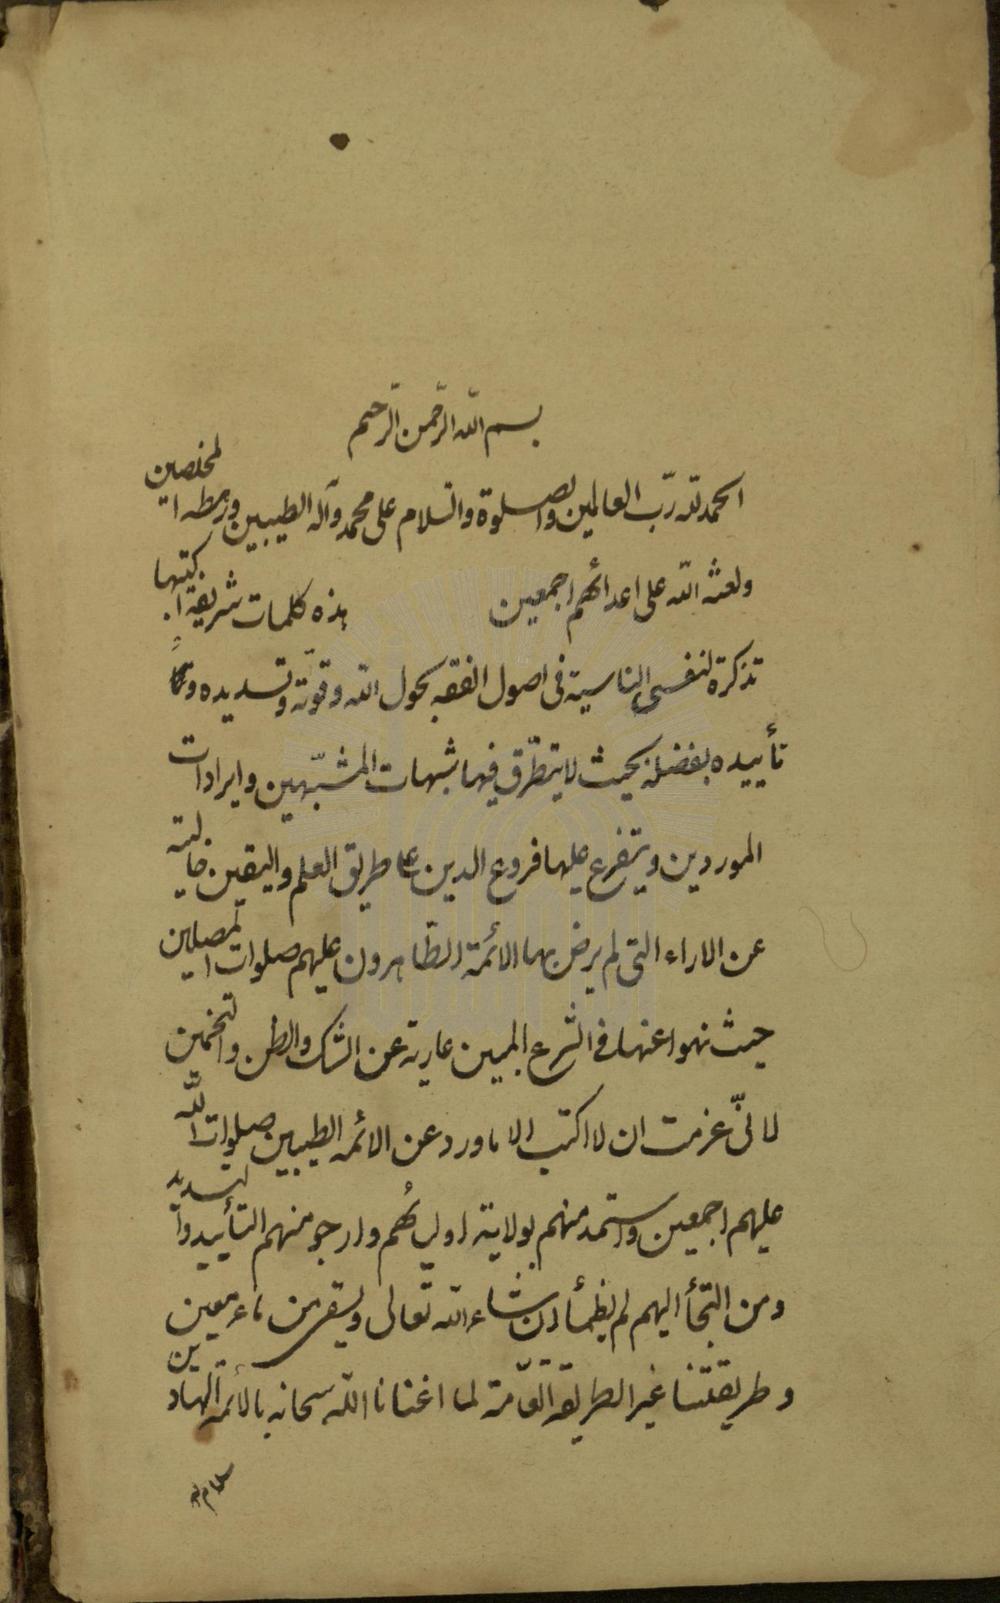 بسم الله الرّحمن الرّحيم
الحمد لله ربّ العالمين والصلوة والسلام على محمد وآله الطيبين ورهطه المخلصين
ولعنة الله على اعدائهم اجمعين هذه كلمات شريفة اكتبها
تذكرة لنفسى الناسية فى اصول الفقه بحول الله وقوّته وتسديده
تأييده بفضله بحيث لا يتطرّق فيها شبهات المشبّهين وايرادات
الموردين ويتفرع عليها فروع الدين على طريق العلم واليقين خالية
عن الاراء التى لم يرض بها الائمة الطّاهرون عليهم صلوات المصلين
حيث نهوا عنها فى الشرع المبين عارية عن الشك والظن والتخمين
لانّى عزمت ان لا اكتب الا ما ورد عن الائمه الطيبين صلوات الله
عليهم اجمعين واستمد منهم بولاية اوليائهم وارجو منهم التأييد والتسديد
ومن التجأ اليهم لم يظمأ ان شاء الله تعالى ويسقى من ماء معين
وطريقتنا غير الطريقة العامّة لما اغنانا الله سبحانه بالائمة الهادين